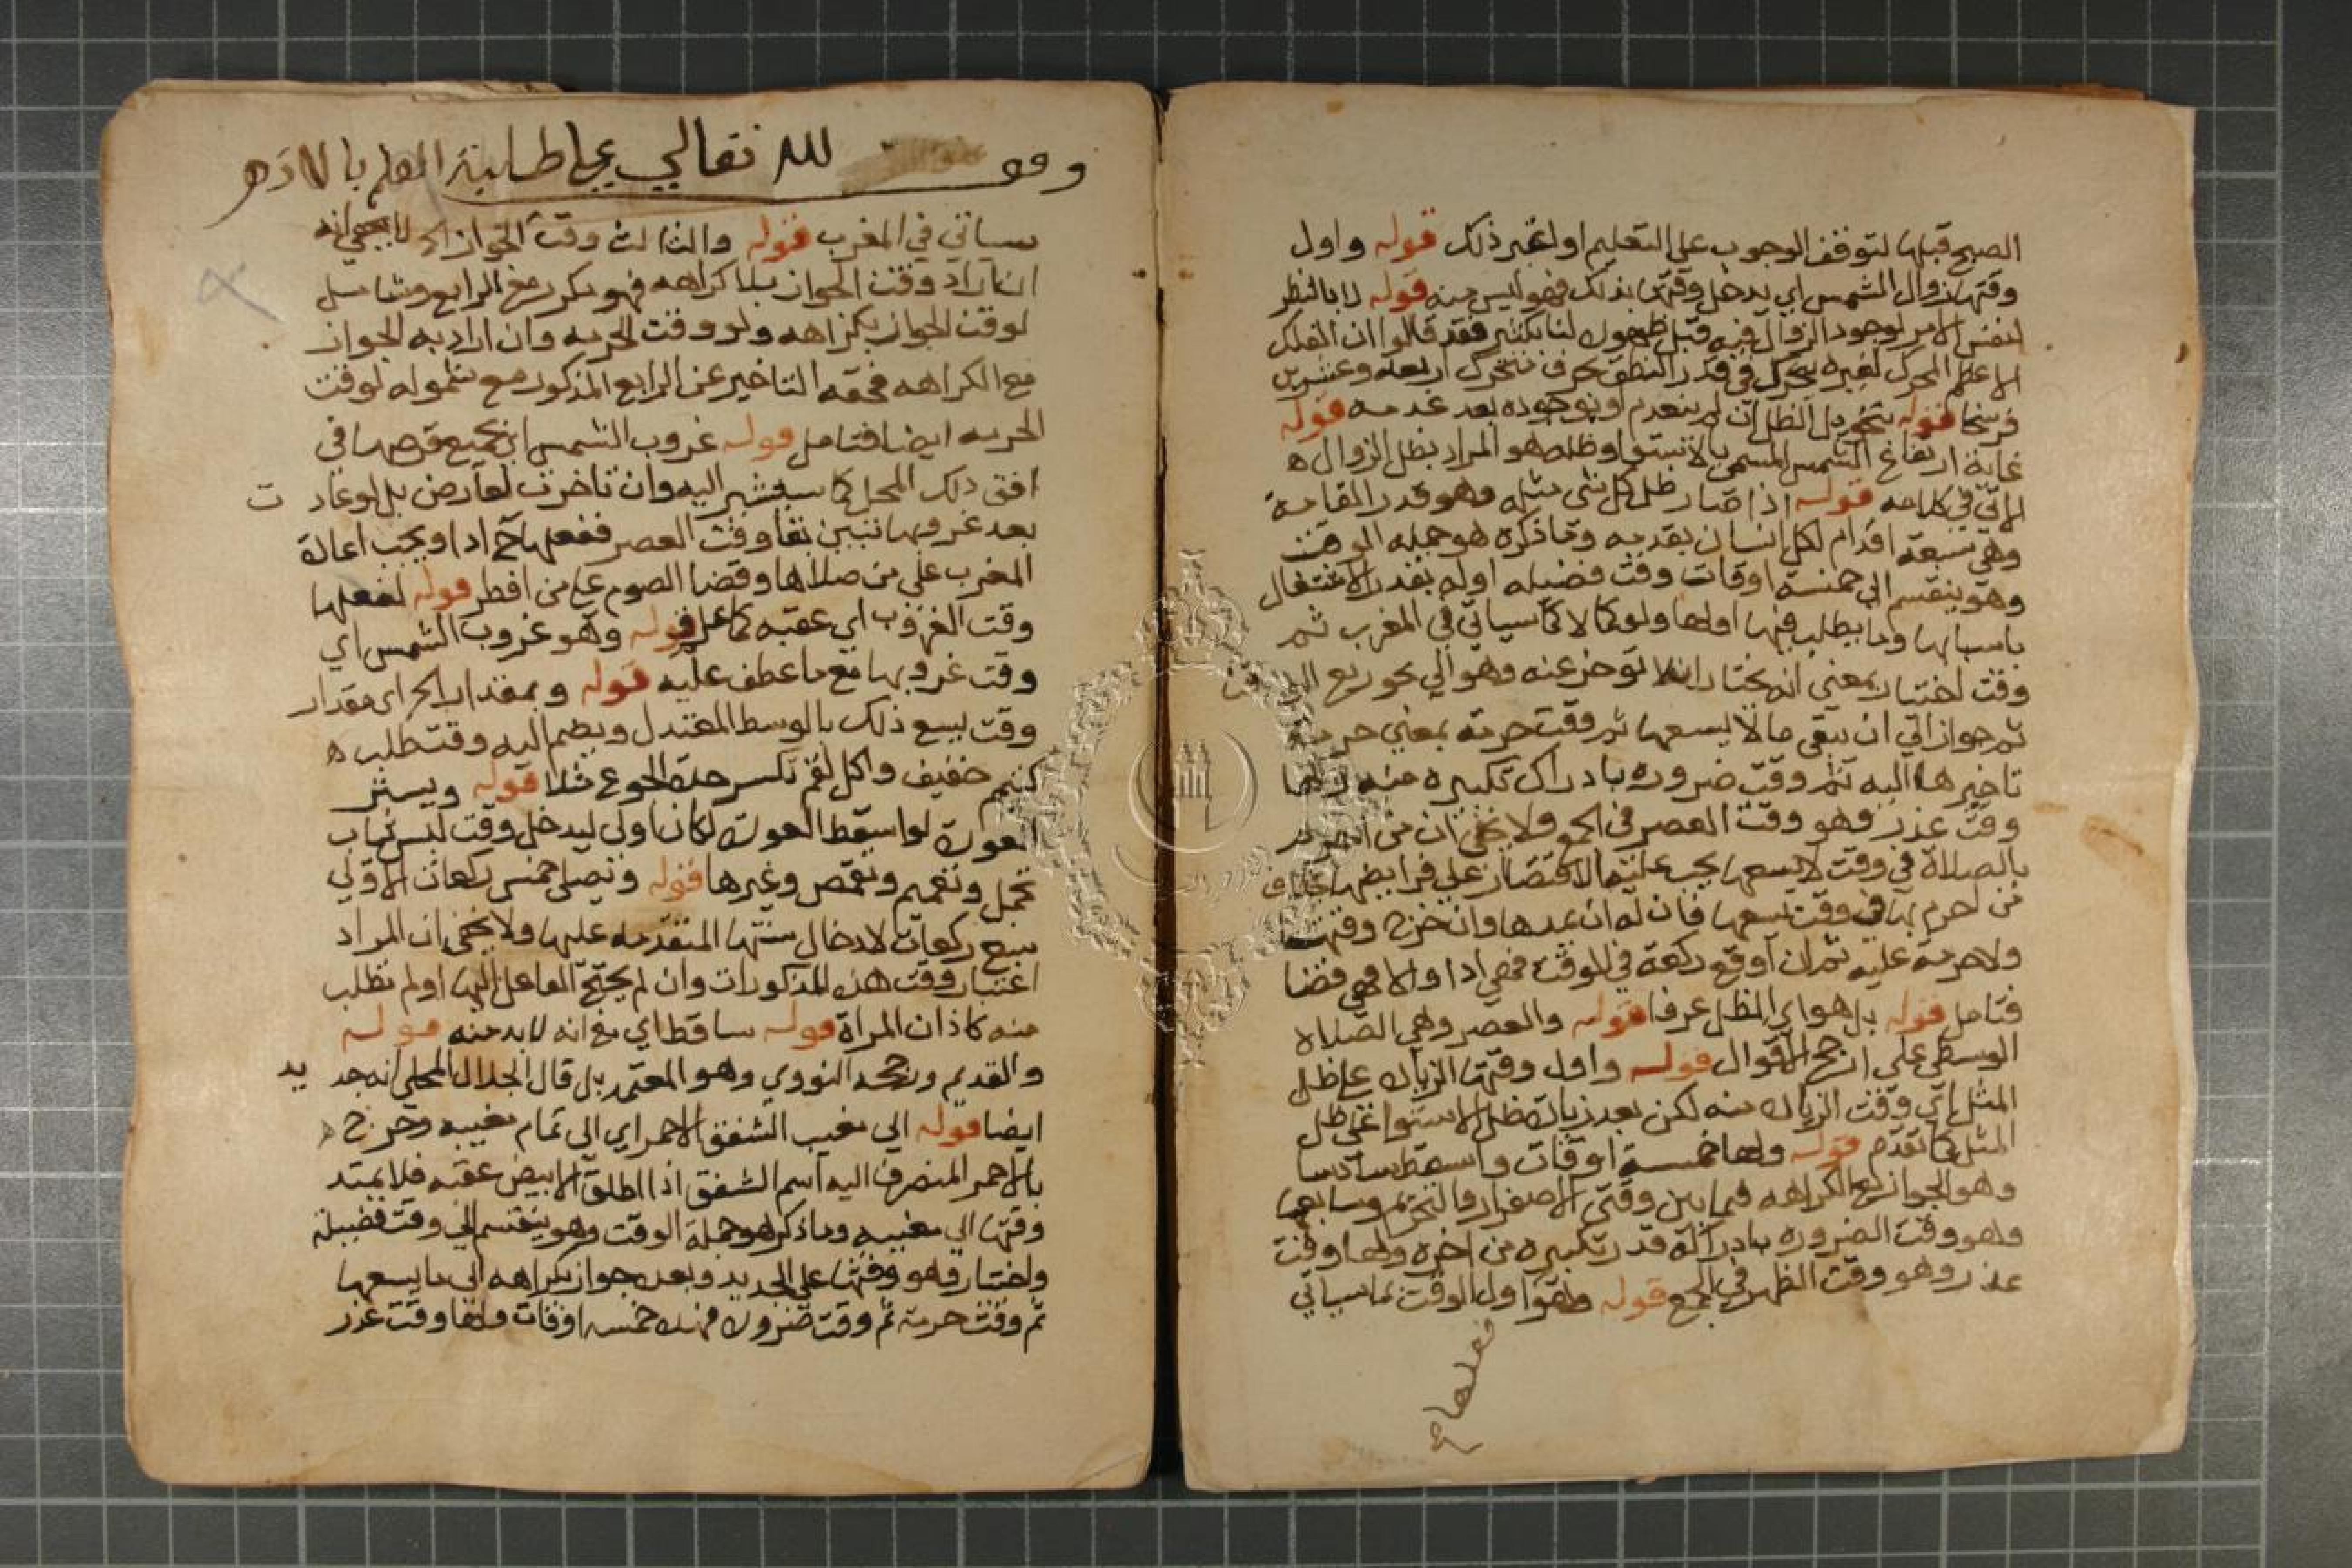 الصبح قبلها لتوقف الوجوب على التعليم او لغير ذلك قوله واول
وقتها زوال الشمس اي يدخل وقتها بذلك فهو ليس منه قوله لا بالنظر
لنفس الامر لوجود الزوال فيه قبل ظهوره لنا بكثير فقد قالوا ان الفلك
الاعظم المحرك لغيره يتحرك في قدر النطق بحرف متحرك اربعه وعشرين
فرسخا قوله بتحويل الظل ان لم ينعدم او بوجوده بعد عدمه قوله
غاية ارتفاع الشمس المسمى بالاستوا وظله هو المراد بظل الزوال ه
الاتي في كلامه قوله اذا صار ظل كل شي مثله وهو قدر القامة
وهي سبعة اقدام لكل انسان بقدميه وما ذكره هو جمله الوقت
وهو ينقسم الى خمسة اوقات وقت فضيله اوله بقدر الاشتغال
باسبابها وما يطلب فيها اولها ولو كمالا كما سياتي في المغرب ثم
وقت اختيار بمعنى انه يختار ان لا توخر عنه وهو الي نحو ربع
ثم جواز الي ان يبقى ما لا يسعها ثم وقت حرمة بمعني حرمة
تاخيرها اليه ثم وقت ضروره بادراك تكبيره منه
وقت عذر وهو وقت العصر في الجمع ولا يخفى ان من
بالصلاة في وقت لا يسعها يجب عليه الاقتصار على فرايضها بخلاف
من احرم بها في وقت يسعها فان له ان يمدها وان خرج وقتها
ولا حرمة عليه ثم ان اوقع ركعة في الوقت فهي ادا والا فهي قضا
فتامل قوله بل هو اي الظل عرفا قوله والعصر وهي الصلاة
الوسطى على ارجح الاقوال قوله واول وقتها الزيادة على ظل
المثل اي وقت الزيادة منه لكن بعد زيادة ظل الاستوا على ظل
المثل كما تقدم قوله ولها خمسة اوقات واسقط سادسا
وهو الجواز مع الكراهه فيما بين وقتي الاصفرار والتحريم وسابعها
وهو وقت الضروره بادراك قدر تكبيره من اخره ولها وقت
عذر وهو وقت الظهر في الجمع قوله وهو اول الوقت كما سياتي
وقف لله تعالي على طلبة العلم بالازهر
سياتي في المغرب قوله والثالث وقت الجواز الخ لا يخفي انه
ان اراد وقت الجواز بلا كراهه فهو مكرر مع الرابع وشامل
لوقت الجواز بكراهه ولو وقت الحرمه وان اراد به الجواز
مع الكراهه فحقه التاخير عن الرابع المذكور مع شموله لوقت
الحرمه ايضا فتامل قوله غروب الشمس اي بجميع قرصها في
افق ذلك المحل كما سيشير اليه وان تاخرت لعارض بل لو عاد ت
بعد غروبها تبين بقا وقت العصر ففعلها ح ادا ويجب اعادة
المغرب على من صلاها وقضا الصوم على من افطر قوله لفعلها
وقت الغروب اي عقبه كما علم قوله وهو غروب الشمس اي
وقت غروبها مع ما عطف عليه قوله وبمقدار الخ اي مقدار
وقت يسع ذلك بالوسط المعتدل ويضم اليه وقت طلب ه
كتيمم خفيف واكل لقم تكسر حدة الجوع مثلا قوله ويستر
العورة لو اسقط العورة لكان اولى ليدخل وقت لبس ثياب
تجمل وتعمم وتقمص وغيرها قوله وتصلى خمس ركعات الاولي
سبع ركعات لادخال سنتها المتقدمه عليها ولا يخفى ان المراد
اعتبار وقت هذه المذكورات وان لم يحتج الفاعل اليها او لم تطلب
منه كاذان المراة قوله ساقط اي مع انه لا بد منه قوله
والقديم ورجحه النووي وهو المعتمد بل قال الجلال المحلي انه جد يد
ايضا قوله الي مغيب الشفق الاحمر اي الى تمام مغيبه وخرج
بالاحمر المنصرف اليه اسم الشفق اذا اطلق الابيض عقبه فلا يمتد
وقتها الي مغيبه وما ذكر هو جملة الوقت وهو ينقسم الى وقت فضيلة
واختيار وهو وقتها على الجديد وبعده جواز بكراهه الى ما يسعها
ثم وقت حرمة ثم وقت ضروره فهذه خمسه اوقات ولها وقت عذر